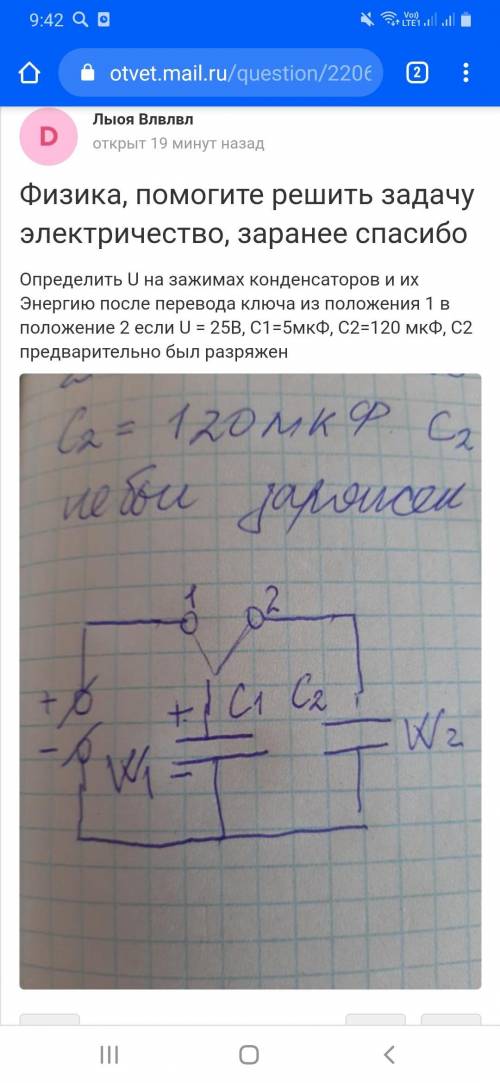 9:42
Vo))
LTE1
otvet.mail.ru/question/2206
2
D
Лыоя Влвлвл
открыт 19 минут назад
Физика, помогите решить задачу
электричество, заранее спасибо
Определить U на зажимах конденсаторов и их
Энергию после перевода ключа из положения 1 в
положение 2 если U = 25В, С1=5мкФ, С2=120 мкФ, С2
предварительно был разряжен
C2 = 120 мкФ. C2
не был заряжен
1 2
+ + C1 C2
- W1 - W2